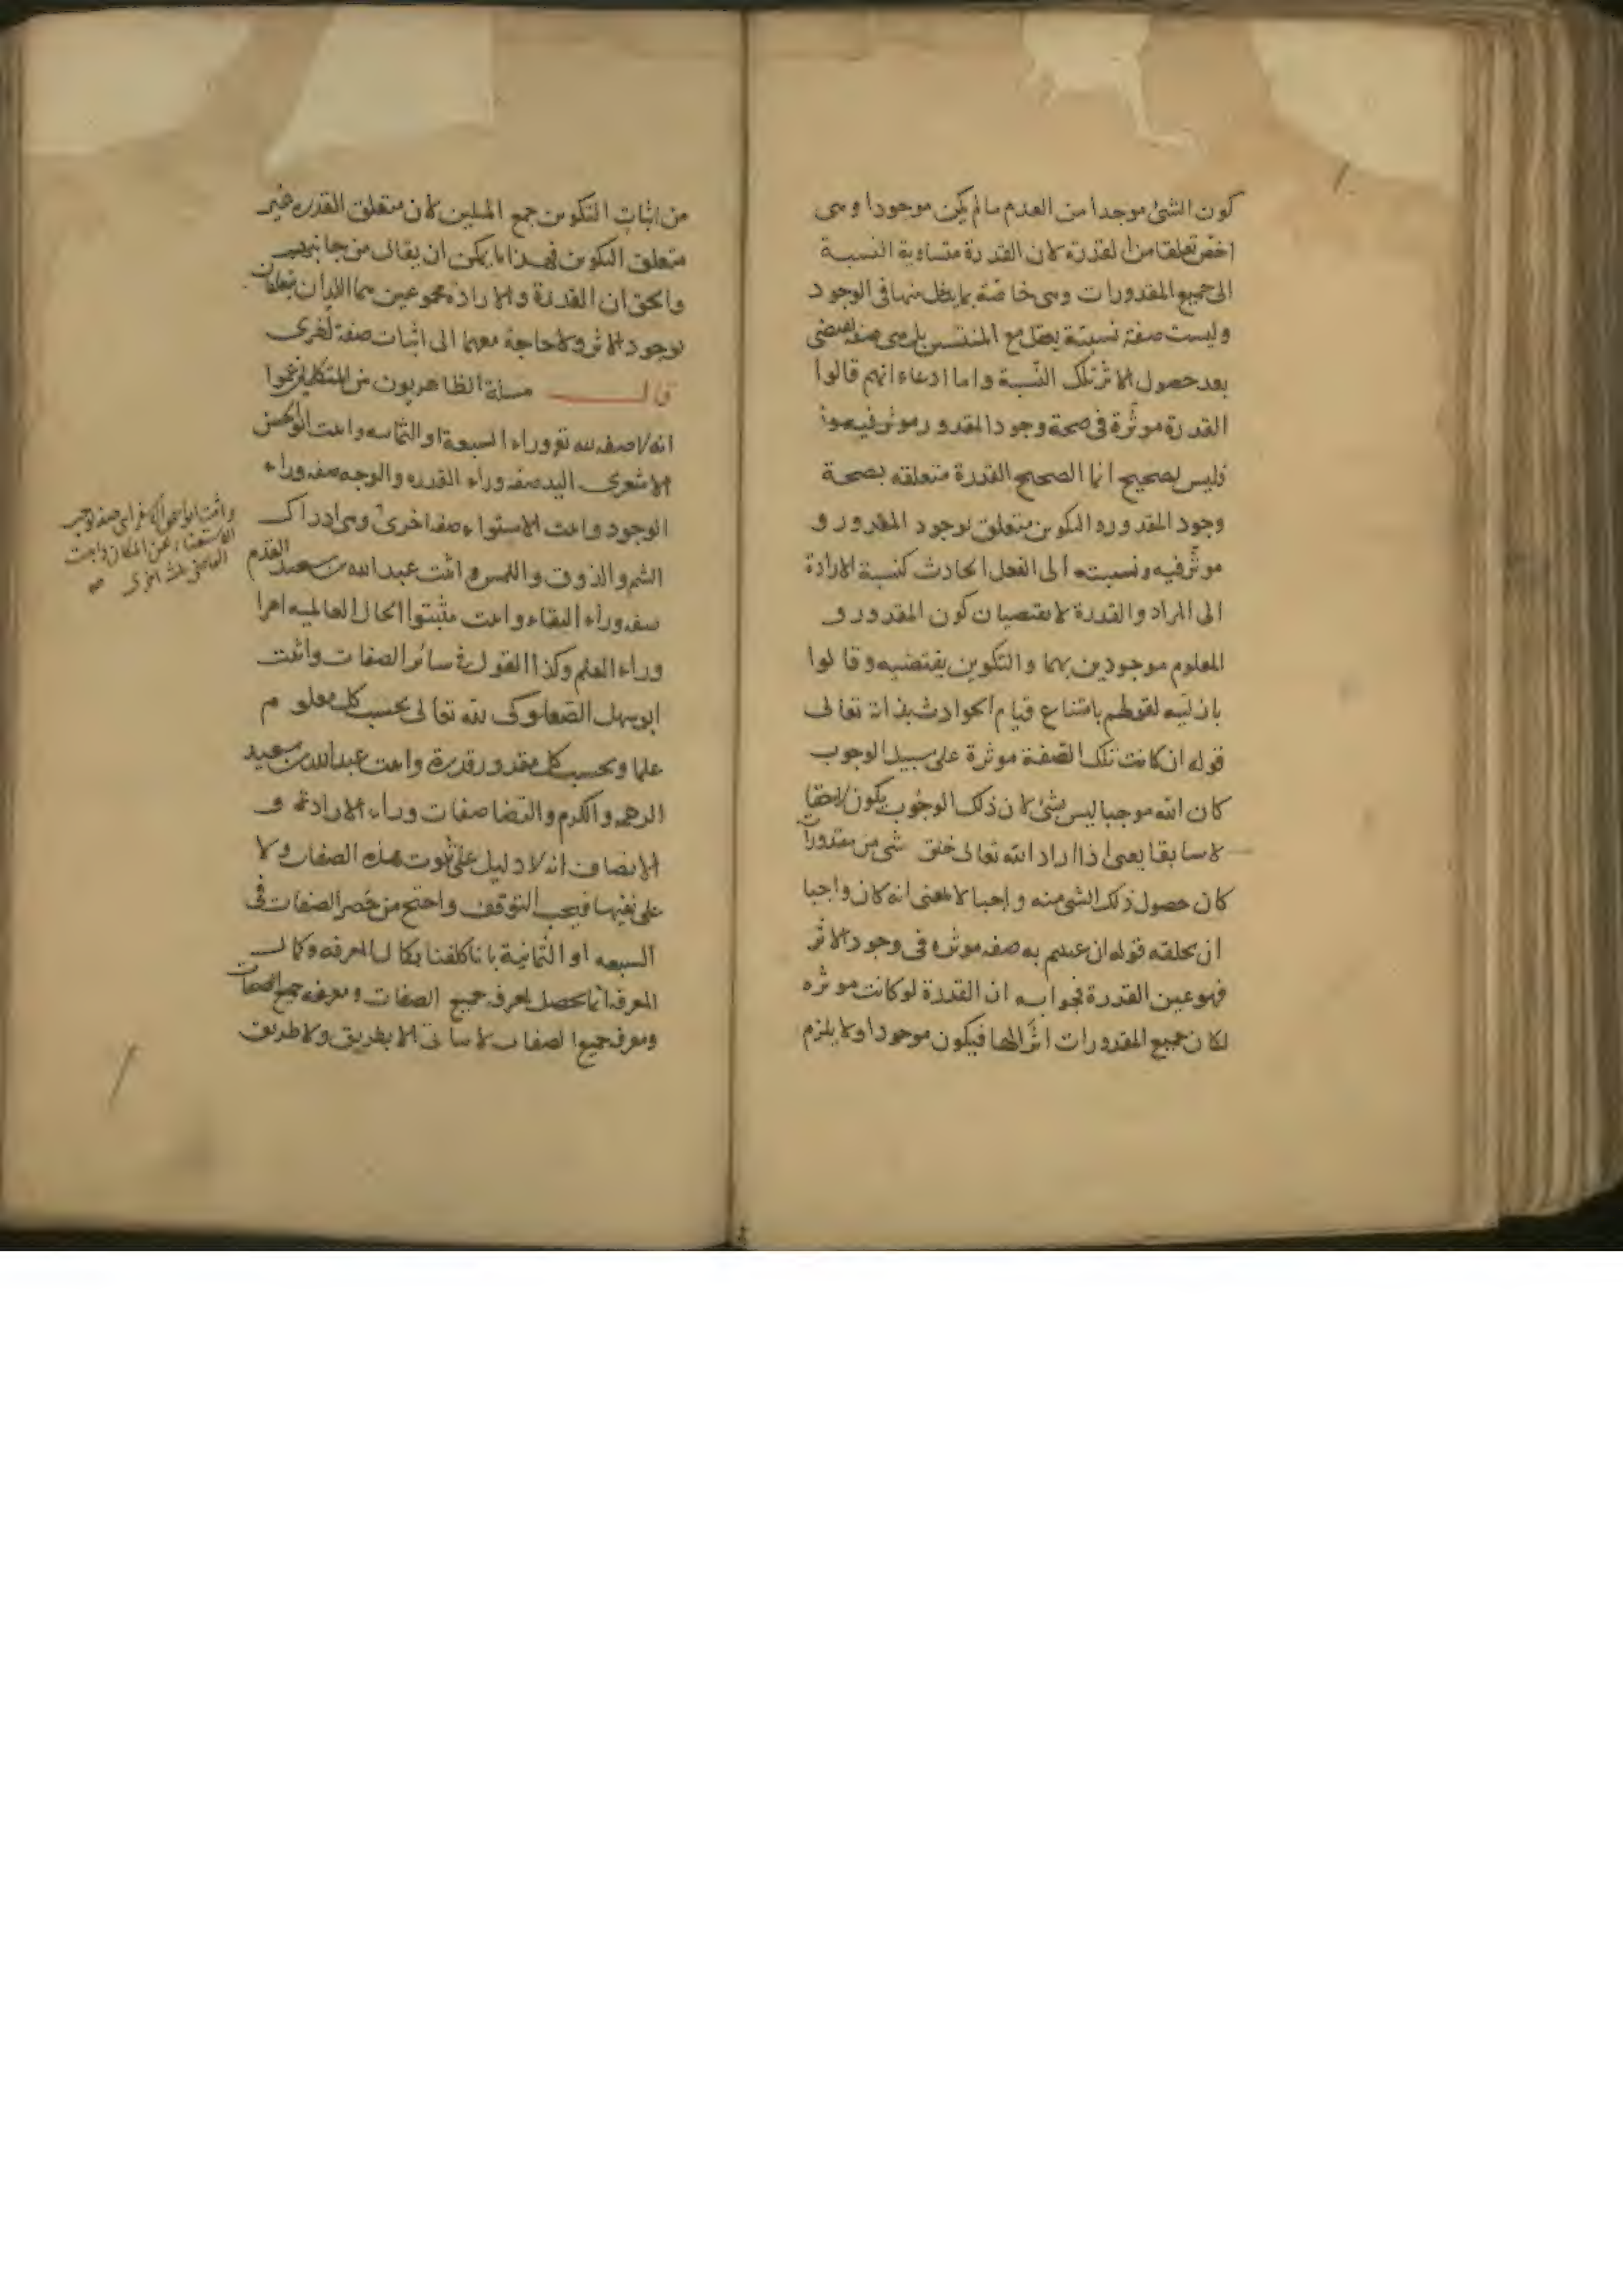 كون الشئ موجدا من العدم ما لم يكن موجودا وهى
اخص تعلقا من القدرة لان القدرة متساوية النسبة
الى جميع المقدورات وهى خاصة بما يدخل منها فى الوجود
وليست صفة نسبية يعقل مع المنتسبين بل هى صفة تقتضى
بعد حصول الاثر تلك النسبة واما ادعاء انهم قالوا
القدرة موثرة فى صحة وجود المقدور
فليس بصحيح انما الصحيح القدرة متعلقه بصحة
وجود المقدور والتكوين متعلق بوجود المقدور و
موثر فيه ونسبته الى الفعل الحادث كنسبة الارادة
الى المراد والقدرة لا يقتضيان كون المقدور و
المعلوم موجودين بهما والتكوين يقتضيه وقالوا
بازليته لقولهم بامتناع قيام الحوادث بذاته تعالى
قوله ان كانت تلك الصفة موثرة على سبيل الوجوب
كان الله موجبا ليس بشئ لان ذلك الوجوب يكون لاحقا
لا سابقا يعنى اذا اراد الله تعالى خلق شى من مقدوراته
كان حصول ذلك الشى منه واجبا لا بمعنى انه كان واجبا
ان يخلقه قوله ان عنيتم به صفه موثره فى وجود الاثر
فهو عين القدرة فجوابه ان القدرة لو كانت موثره
لكان جميع المقدورات اثرا لها فيكون موجودا ولا يلزم
من اثبات التكوين جمع المثلين لان متعلق القدره غير
متعلق التكوين فهذا ما يمكن ان يقال من جانبهم
والحق ان القدرة والارادة مجموعين هما اللذان يتعلقان
بوجود الاثر ولا حاجة معهما الى اثبات صفة اخرى
قال مسلة الظاهريون من المتكلمين زعموا
انه لا صفه لله تع وراء السبعة او الثمانيه واثبت ابو الحسن
الاشعرى اليد صفه وراء القدره والوجه صفه وراء
الوجود واثبت الاستواء صفه اخرى وهى ادراك
الشم والذوق واللمس واثبت عبد الله بن سعيد القدم
صفه وراء البقاء واثبت مثبتوا الحال العالميه امرا
وراء العلم وكذا القول فى سائر الصفات واثبت
ابو سهل الصعلوكى لله تعالى بحسب كل معلوم
علما وبحسب كل مقدور قدرة واثبت عبد الله بن سعيد
الرحمه والكرم والرضا صفات وراء الارادة و
الانصاف انه لا دليل على ثبوت هذه الصفات ولا
على نفيها فيجب التوقف واحتج من حصر الصفات فى
السبعه او الثمانية بانا كلفنا بكمال المعرفه وكمال
المعرفه انما يحصل بمعرفه جميع الصفات ومعرفه جميع الصفات
ومعرفه جميع الصفات لا يتاتى الا بطريق ولا طريق
واثبت ابو اسحق الاسفراينى صفه توجب
الاستغناء عن المكان واثبت
القاضى ثلث اخرى صح